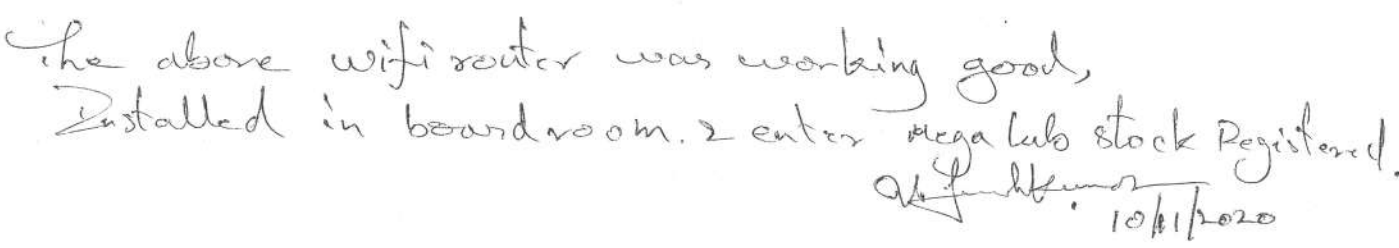 The above wifi router was working good,
Installed in boardroom. & enter mega lab stock Registered.
10/11/2020